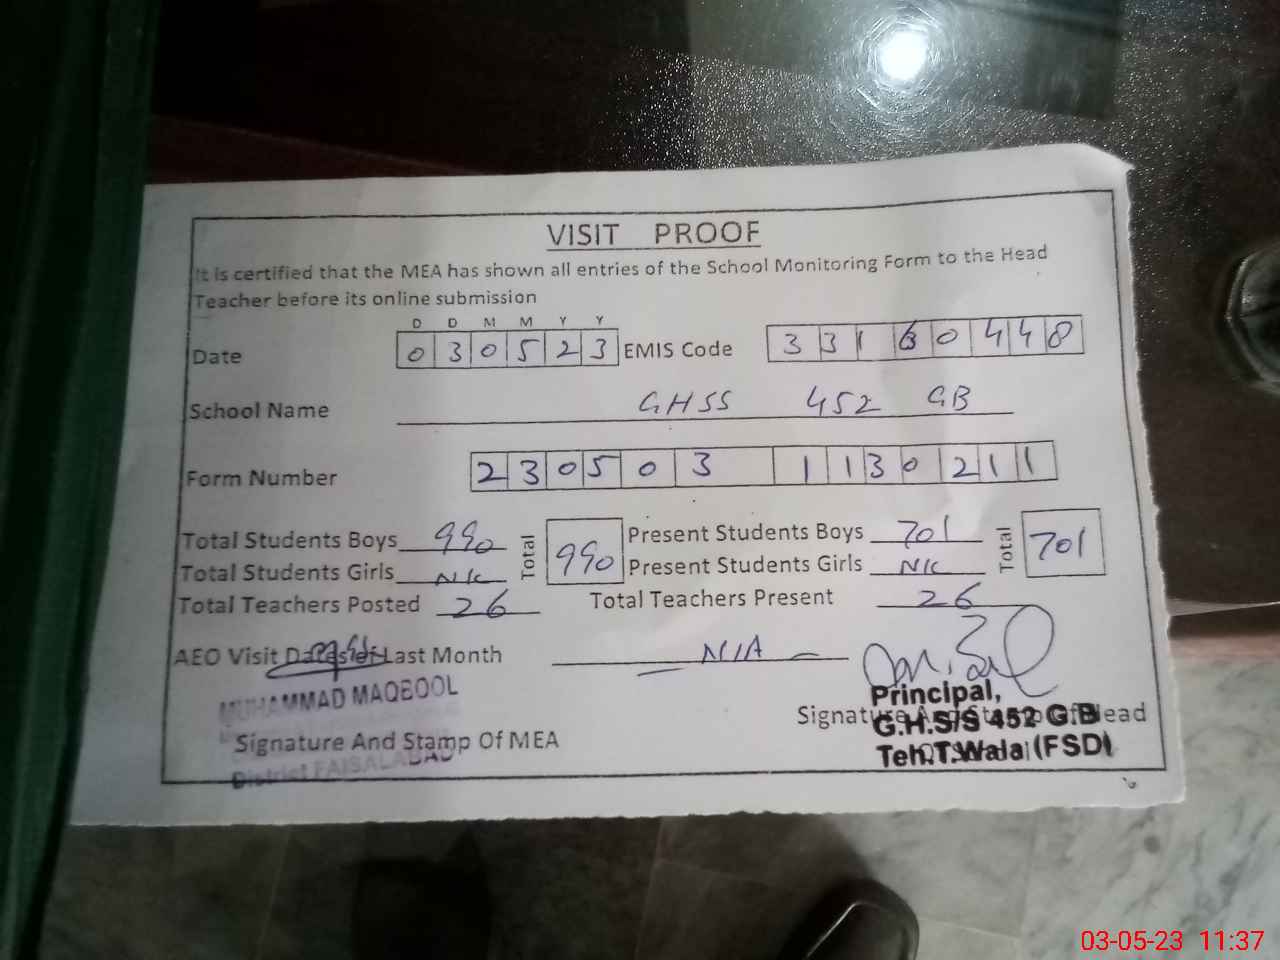 VISIT PROOF
It is certified that the MEA has shown all entries of the School Monitoring Form to the Head
Teacher before its online submission
D D M M Y Y
Date 0 3 0 5 2 3 EMIS Code 3 3 1 6 0 4 4 8
School Name GHSS 452 GB
Form Number 2 3 0 5 0 3 1 1 3 0 2 1 1
Total Students Boys 990 Total 990 Present Students Boys 701 Total 701
Total Students Girls Nil Present Students Girls Nil
Total Teachers Posted 26 Total Teachers Present 26
AEO Visit Dates of Last Month N/A
MUHAMMAD MAQBOOL
Principal,
Signature And Stamp Of Head
G.H.S/S 452 G.B
Signature And Stamp Of MEA
Teh.T.Wala (FSD)
District FAISALABAD
03-05-23 11:37